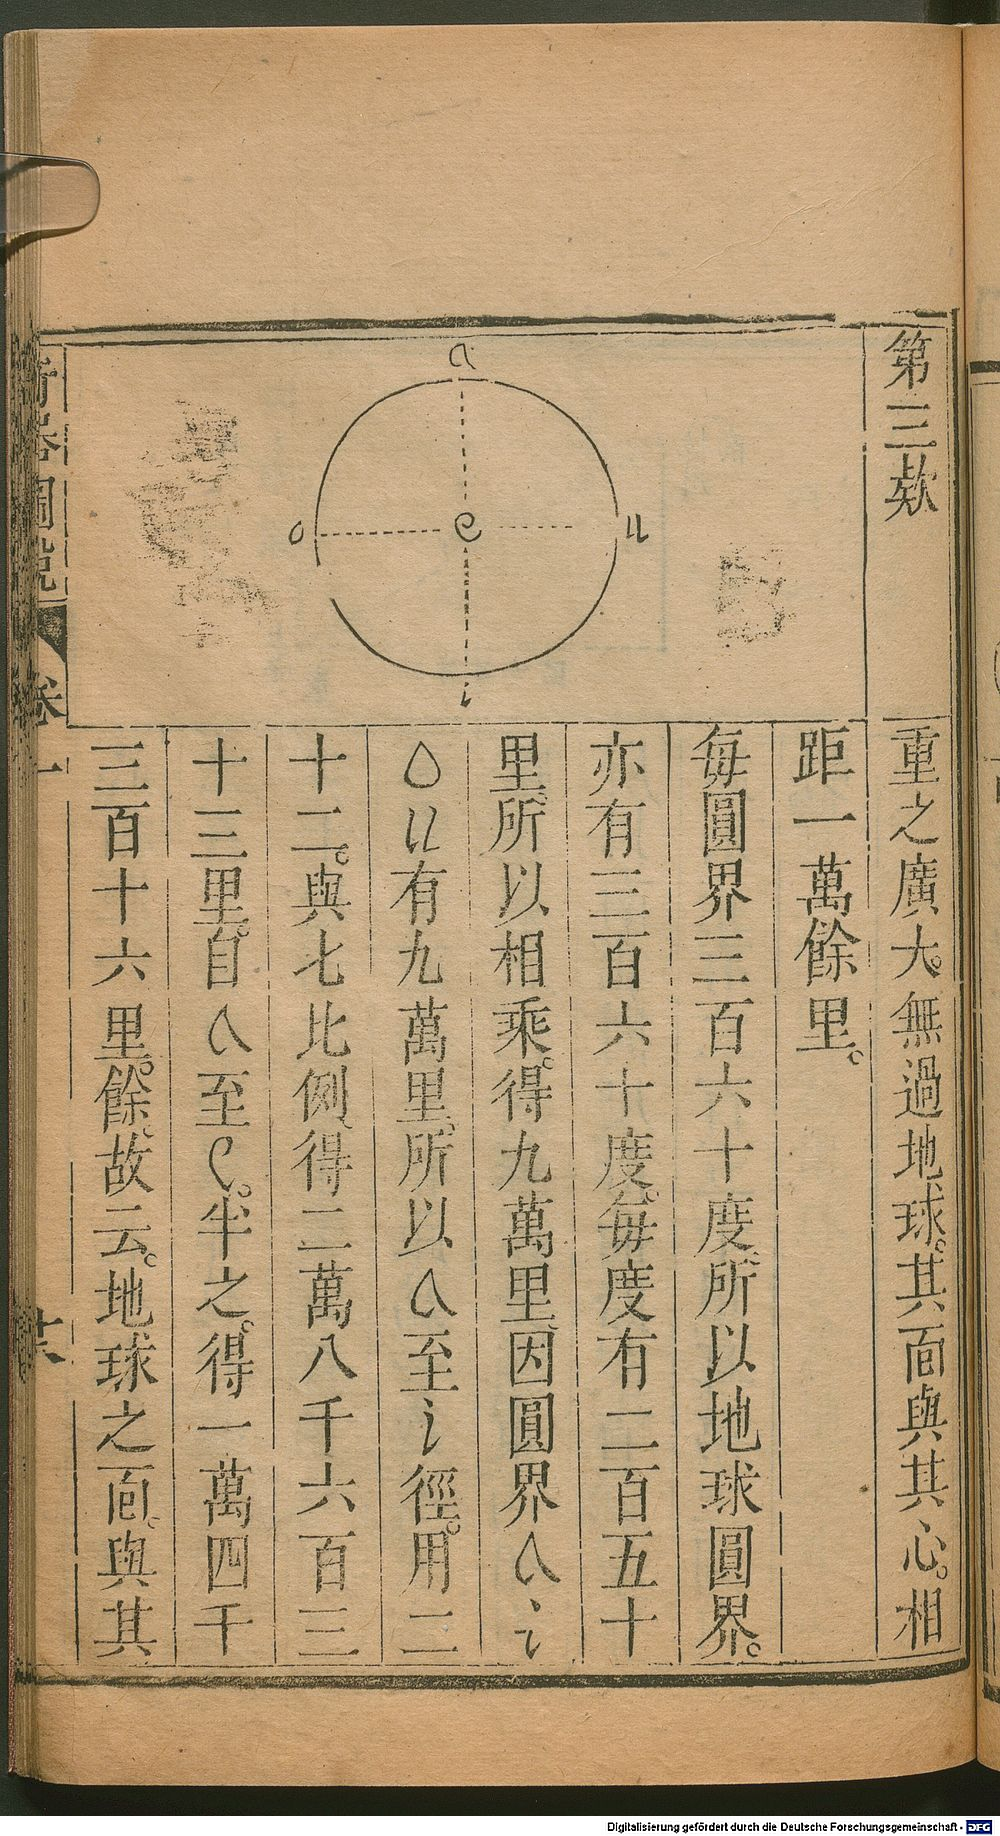 第三款
重之廣大。無過地球。其面與其心。相
距一萬餘里。
每圓界三百六十度。所以地球圓界。
亦有三百六十度。每度有二百五十
里。所以相乘。得九萬里。因圓界a i
o u有九萬里。所以a至i徑。用二
十二。與七比例。得二萬八千六百三
十三里。自a至e。半之。得一萬四千
三百十六里。餘。故云。地球之面。與其
a
o
e
u
i
卷一
Digitalisierung gefördert durch die Deutsche Forschungsgemeinschaft - DFG